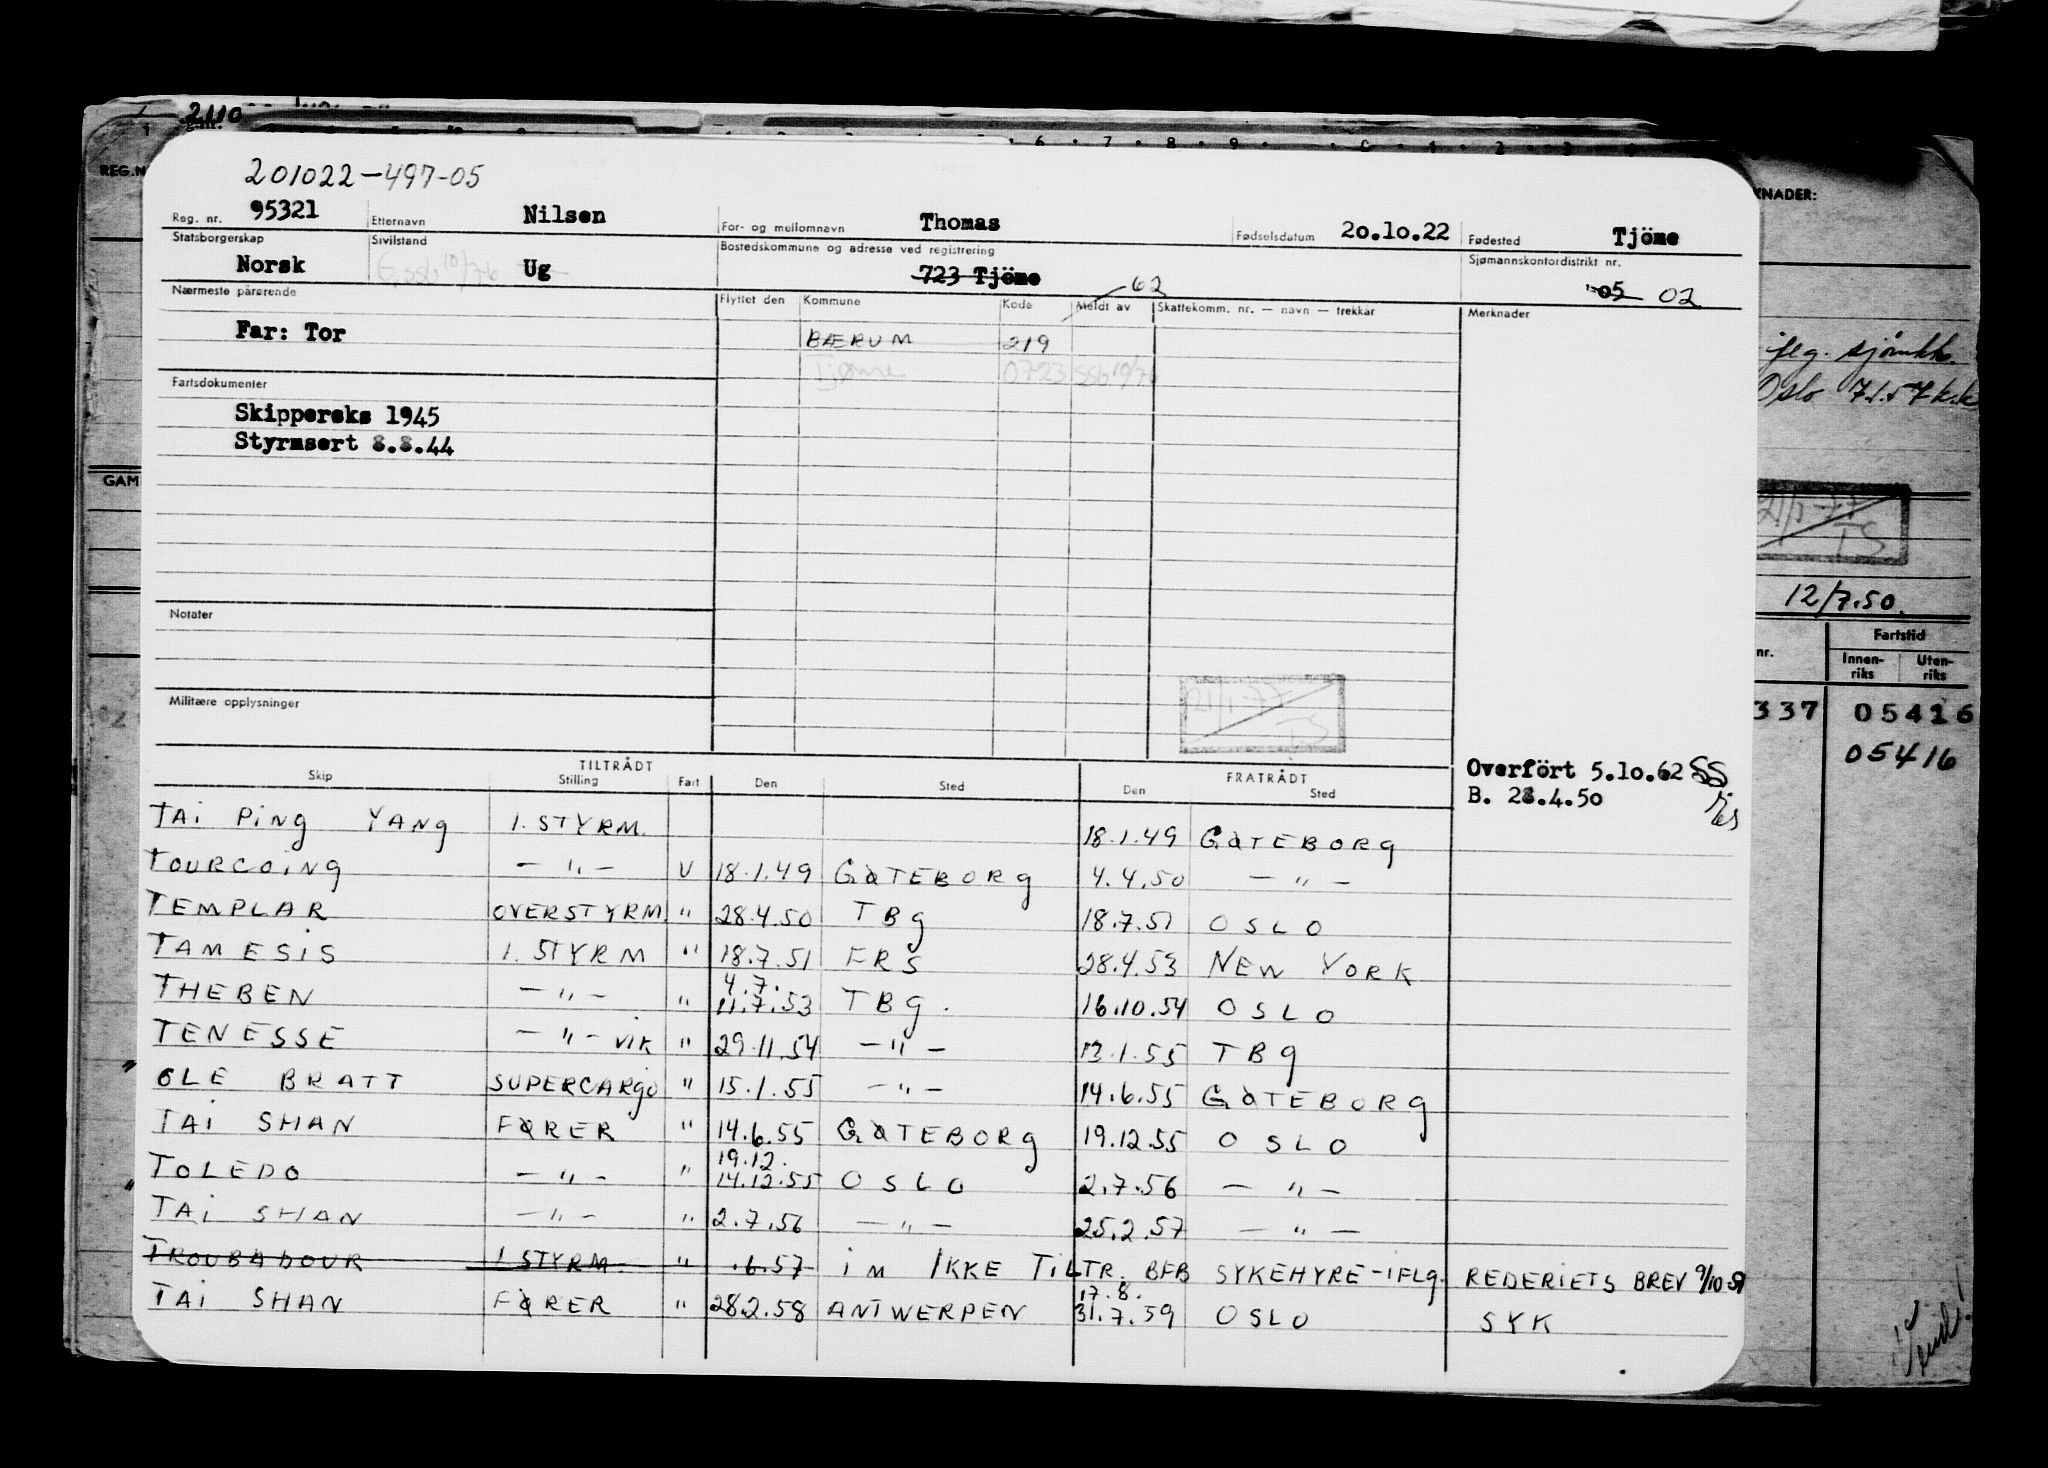 2110
REG.N
KNADER:
201022-497-05
Reg. nr. 95321 Etternavn Nilsen For- og mellomnavn Thomas Fødselsdatum 20.10.22 Fødested Tjöme
Statsborgerskap Sivilstand Bostedskommune og adresse ved registrering Sjømannskontordistrikt nr.
Norsk G.ssb 10/76 Ug 723 Tjöme 05 02
62
Nærmeste pårørende Flyttet den Kommune Kode Meldt av Skattekomm. nr. — navn — trekkår Merknader
Far: Tor BÆRUM 219
Tjøme 0723 SSb 10/76
Fartsdokumenter
Skippereks 1945
Styrmsert 8.8.44
Notater
Militære opplysninger
21/1-77
TS
TILTRÅDT FRATRÅDT
Skip Stilling Fart Den Sted Den Sted
Overfört 5.10.62 SS
B. 28.4.50
TAI PING YANG 1. STYRM. 18.1.49 GØTEBORG
TOURCOING — " — V 18.1.49 GØTEBORG 4.4.50 — " —
TEMPLAR OVERSTYRM. " 28.4.50 TBG 18.7.51 OSLO
TAMESIS 1. STYRM " 18.7.51 FRS 28.4.53 NEW YORK
THEBEN — " — " 4.7. 11.7.53 TBG. 16.10.54 OSLO
TENESSE — " — VIK " 29.11.54 — " — 13.1.55 TBG
" OLE BRATT SUPERCARGO " 15.1.55 — " — 14.6.55 GØTEBORG
TAI SHAN FØRER " 14.6.55 GØTEBORG 19.12.55 OSLO
TOLEDO — " — " 19.12. 14.12.55 OSLO 2.7.56 — " —
" TAI SHAN — " — " 2.7.56 — " — 25.2.57 — " —
TROUBADOUR 1 STYRM. " .6.57 im IKKE TILTR. BFB SYKEHYRE-IFLG. REDERIETS BREV 9/10 57
TAI SHAN FØRER " 28.2.58 ANTWERPEN 17.8. 31.7.59 OSLO SYK
GAM
jfg. sjømkk.
Oslo 7.1.57 k.k
21/1-77
TS
12/7.50.
nr. Fartstid
Innen-riks Uten-riks
337 05416
05416
Vend!